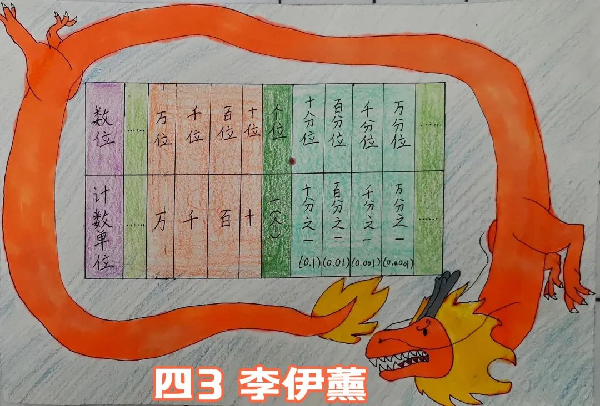 数位 …… 万位 千位 百位 十位 个位 十分位 百分位 千分位 万分位 ……
计数单位 …… 万 千 百 十 一(个) 十分之一(0.1) 百分之一(0.01) 千分之一(0.001) 万分之一(0.0001) ……
四3 李伊薰